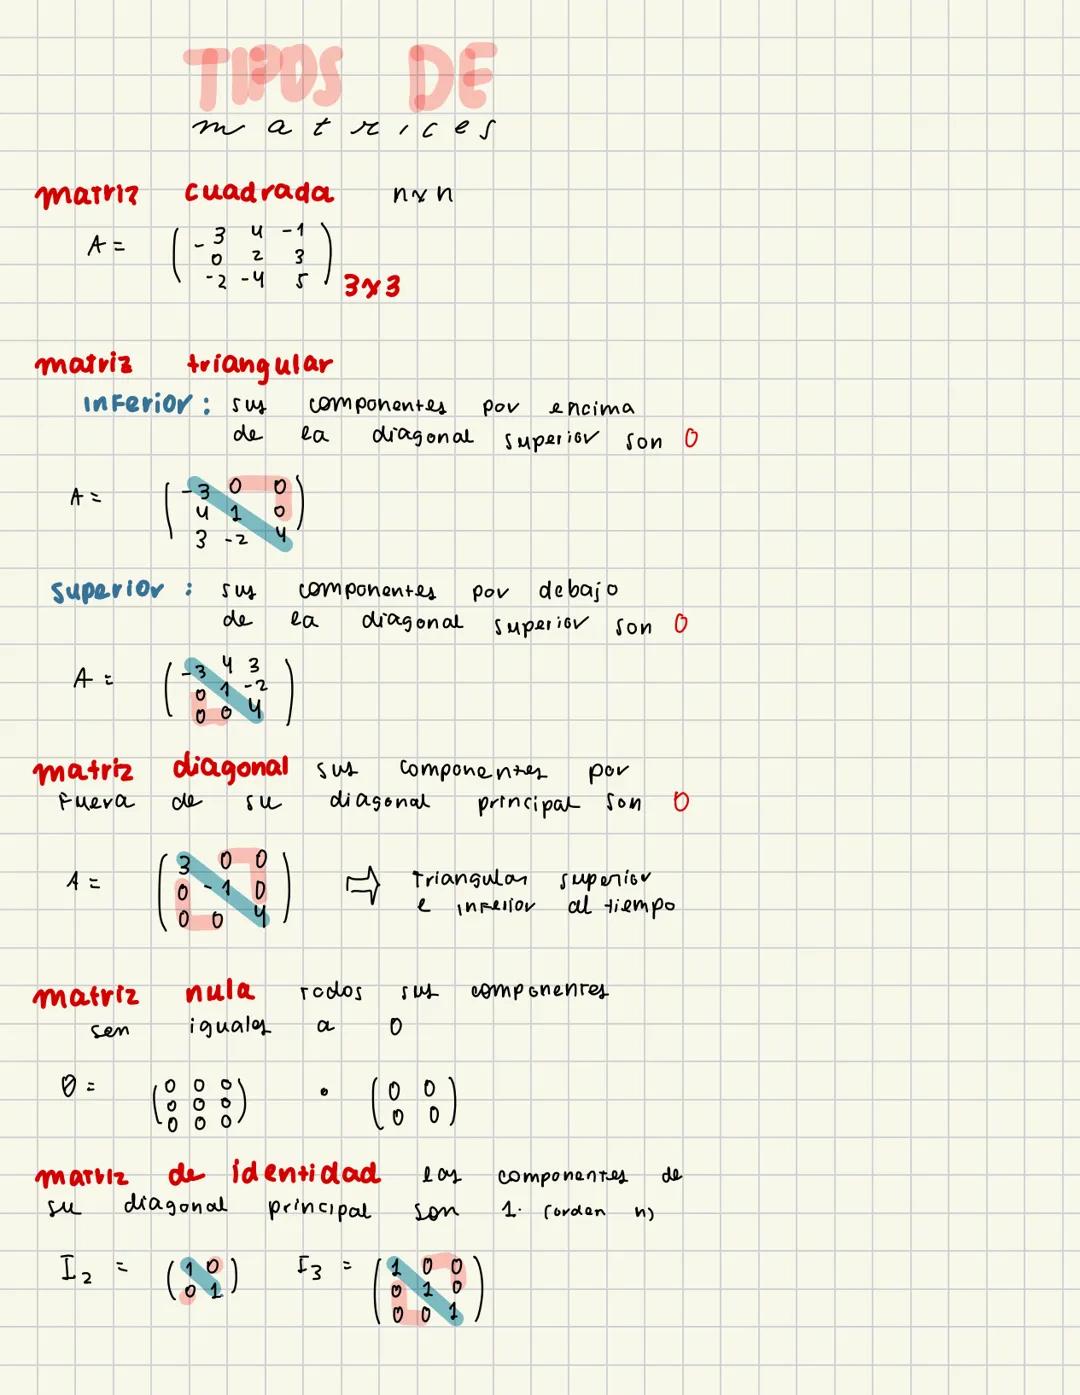 TIPOS DE
matrices
matriz cuadrada nxn
A = ( -3 4 -1
0 2 3
-2 -4 5 ) 3x3
matriz triangular
inferior: sus componentes por encima
de la diagonal superior son 0
A = ( -3 0 0
4 1 0
3 -2 4 )
superior: sus componentes por debajo
de la diagonal superior son 0
A = ( -3 4 3
0 1 -2
0 0 4 )
matriz diagonal sus componentes por
fuera de su diagonal principal son 0
A = ( 3 0 0
0 -1 0
0 0 4 ) ⇒ Triangular superior
e inferior al tiempo
matriz nula todos sus componentes
sen iguales a 0
0 = ( 0 0 0
0 0 0
0 0 0 ) • ( 0 0
0 0 )
matriz de identidad las componentes de
su diagonal principal son 1. (orden n)
I2 = ( 1 0
0 1 ) I3 = ( 1 0 0
0 1 0
0 0 1 )